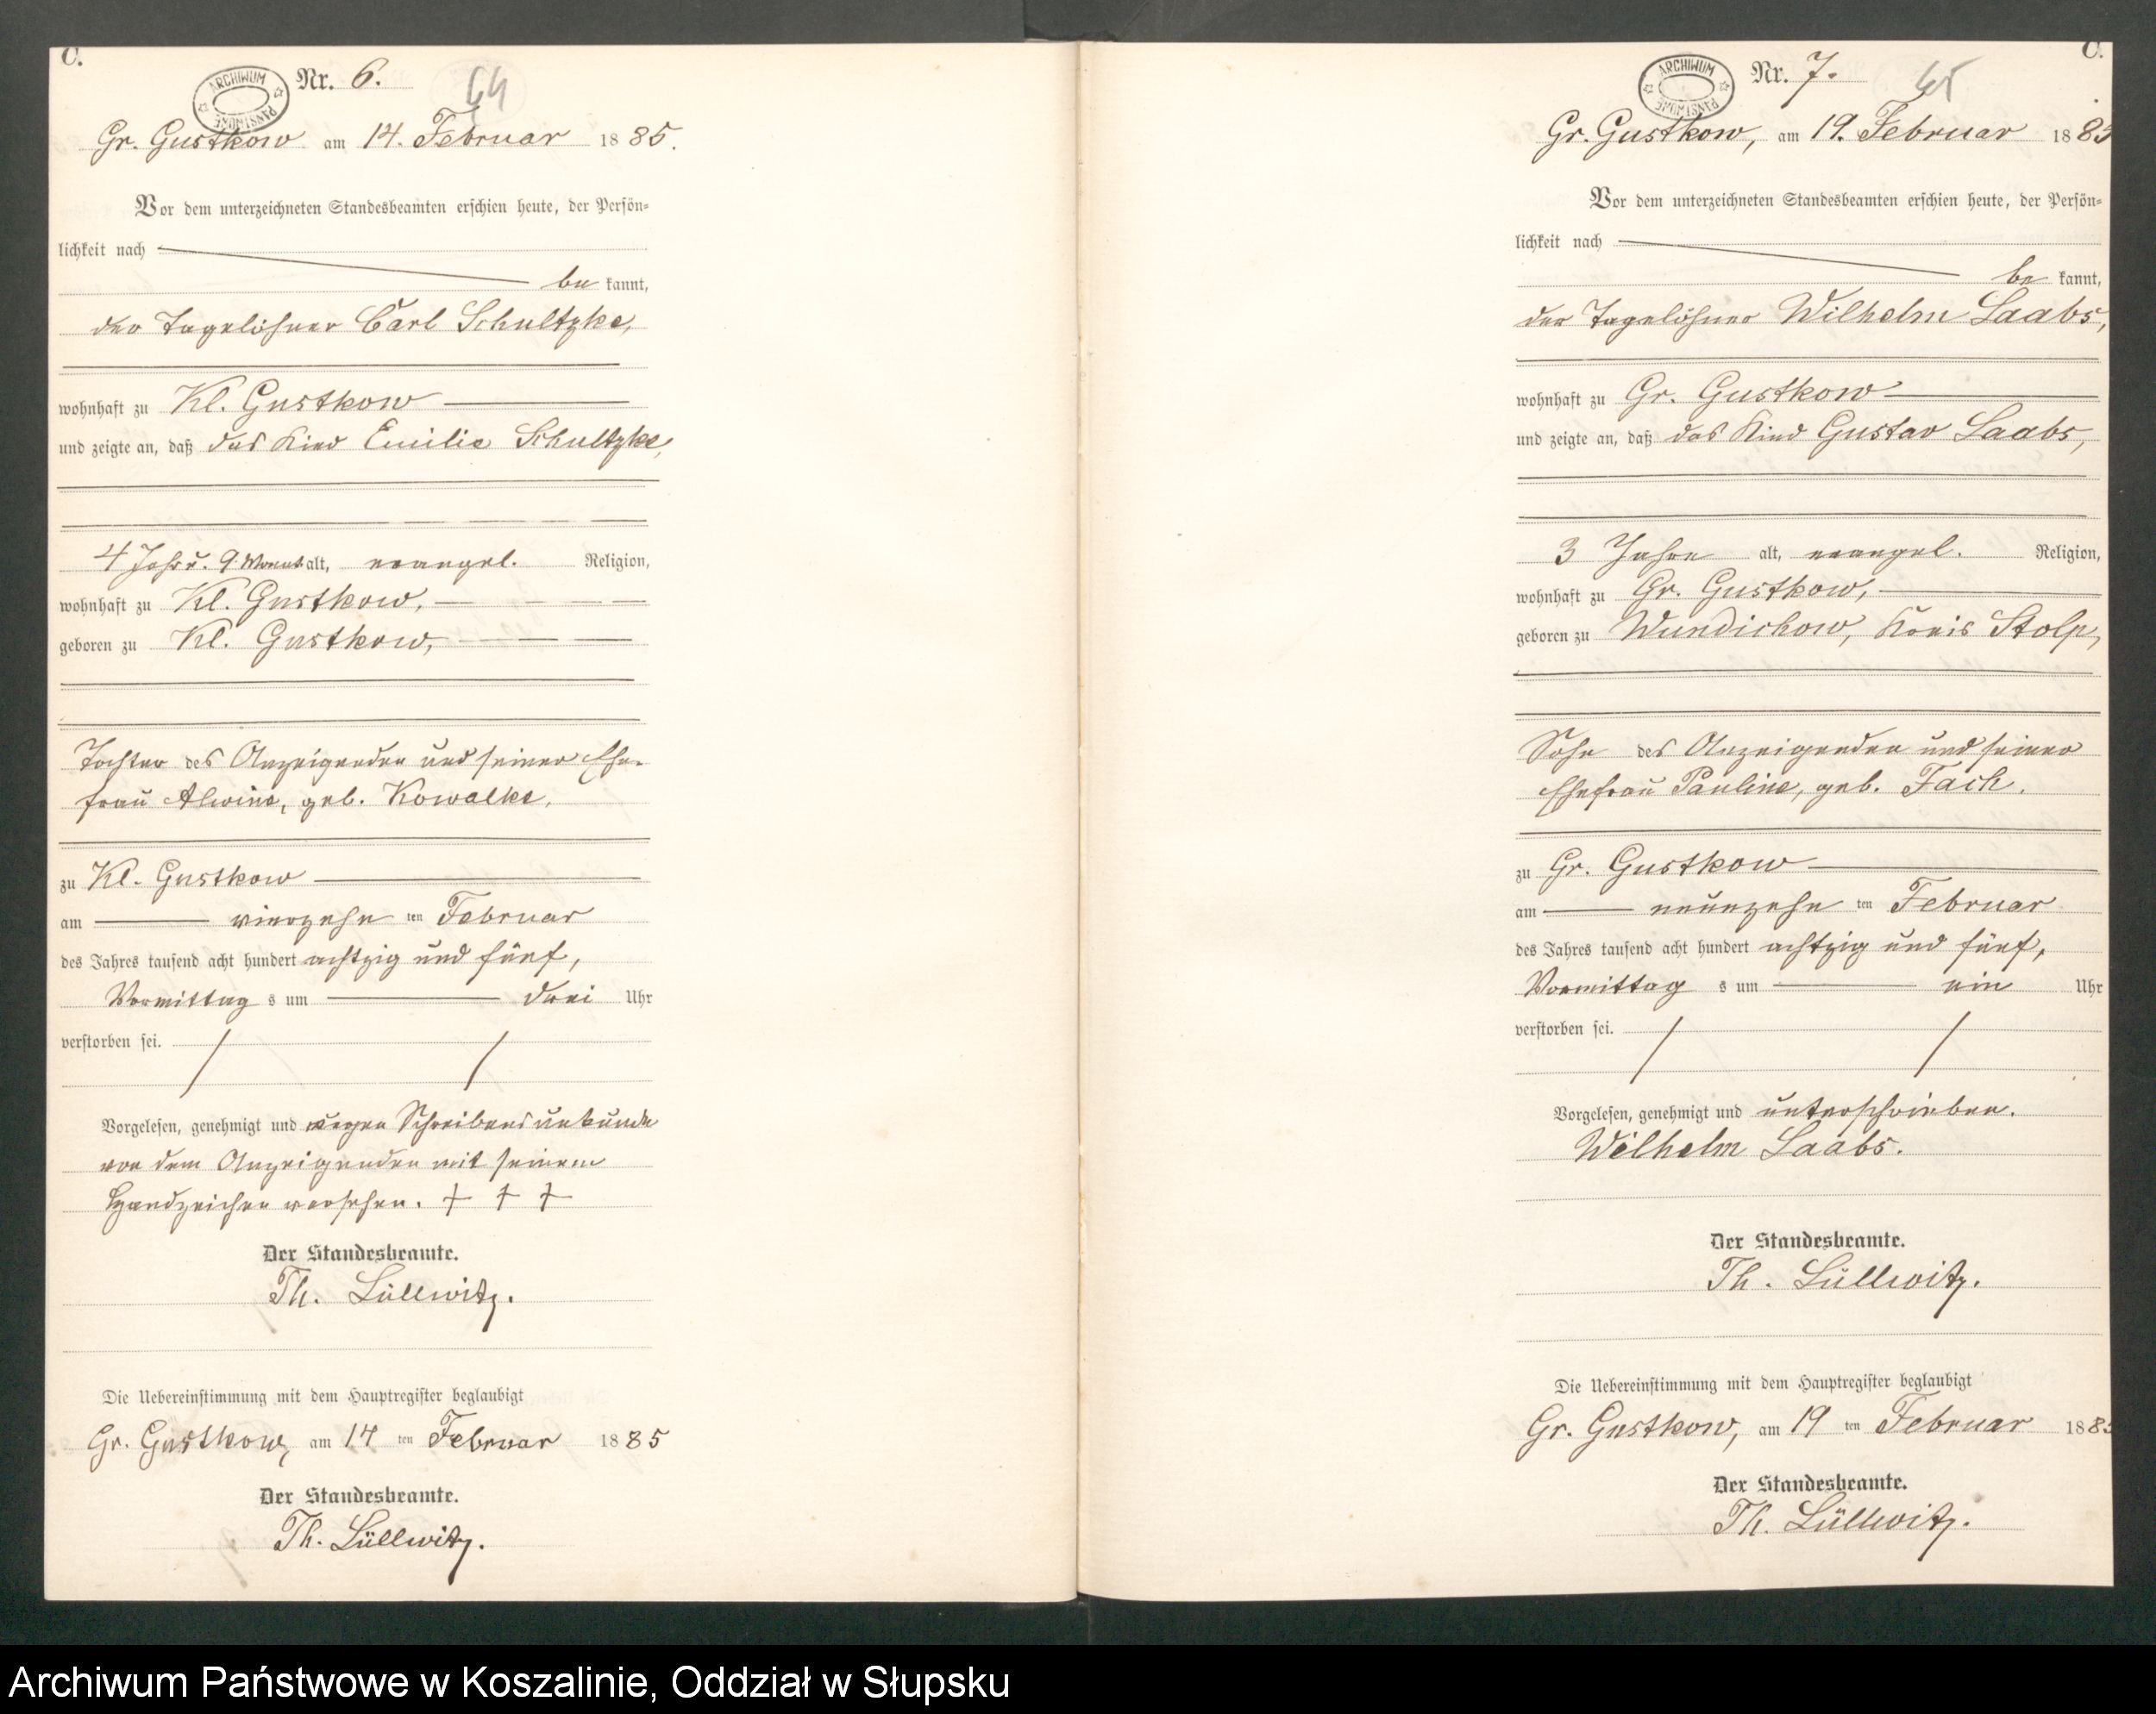 C.
ARCHIWUM PAŃSTWOWE
Nr. 6.
64
Gr. Gustkow am 14. Februar 1885.
Vor dem unterzeichneten Standesbeamten erschien heute, der Persön-
lichkeit nach
be kannt,
der Tagelöhner Carl Schultzke,
wohnhaft zu Kl. Gustkow
und zeigte an, daß das Kind Emilie Schultzke,
4 Jahr u. 9 Monat alt, evangel. Religion,
wohnhaft zu Kl. Gustkow,
geboren zu Kl. Gustkow,
Tochter des Anzeigenden und seiner Ehe-
frau Alwine, geb. Kowalke,
zu Kl. Gustkow
am vierzehn ten Februar
des Jahres tausend acht hundert achtzig und fünf,
Vormittag s um drei Uhr
verstorben sei.
Vorgelesen, genehmigt und wegen Schreibensunkunde
von dem Anzeigenden mit seinem
Handzeichen versehen. + + +
Der Standesbeamte.
Th. Lüllwitz.
Die Uebereinstimmung mit dem Hauptregister beglaubigt
Gr. Gustkow, am 14 ten Februar 1885
Der Standesbeamte.
Th. Lüllwitz.
C.
ARCHIWUM PAŃSTWOWE
Nr. 7.
65
Gr. Gustkow, am 19. Februar 1885
Vor dem unterzeichneten Standesbeamten erschien heute, der Persön-
lichkeit nach
be kannt,
der Tagelöhner Wilhelm Laabs,
wohnhaft zu Gr. Gustkow
und zeigte an, daß das Kind Gustav Laabs,
3 Jahre alt, evangel. Religion,
wohnhaft zu Gr. Gustkow,
geboren zu Wundichow, Kreis Stolp,
Sohn des Anzeigenden und seiner
Ehefrau Pauline, geb. Fach.
zu Gr. Gustkow
am neunzehn ten Februar
des Jahres tausend acht hundert achtzig und fünf,
Vormittag s um ein Uhr
verstorben sei.
Vorgelesen, genehmigt und unterschrieben.
Wilhelm Laabs.
Der Standesbeamte.
Th. Lüllwitz.
Die Uebereinstimmung mit dem Hauptregister beglaubigt
Gr. Gustkow, am 19 ten Februar 1885
Der Standesbeamte.
Th. Lüllwitz.
Archiwum Państwowe w Koszalinie, Oddział w Słupsku